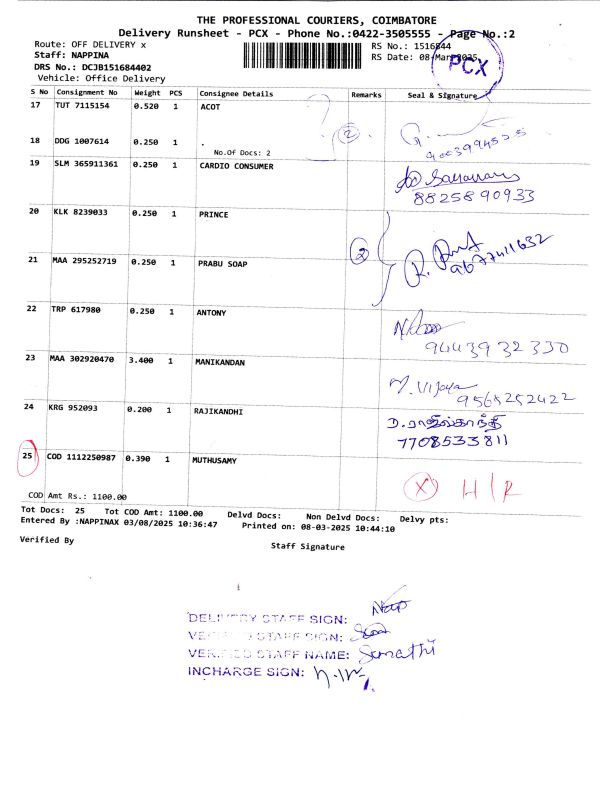 THE PROFESSIONAL COURIERS, COIMBATORE
Delivery Runsheet - PCX - Phone No.:0422-3505555 - Page No.:2
Route: OFF DELIVERY x RS No.: 1516844
Staff: NAPPINA RS Date: 08-Mar-2025
PCX
DRS No.: DCJB151684402
Vehicle: Office Delivery
S No Consignment No Weight PCS Consignee Details Remarks Seal & Signature
17 TUT 7115154 0.520 1 ACOT
18 DDG 1007614 0.250 1 . 2
No.Of Docs: 2
19 SLM 365911361 0.250 1 CARDIO CONSUMER
8825890933
20 KLK 8239033 0.250 1 PRINCE
2
21 MAA 295252719 0.250 1 PRABU SOAP
22 TRP 617980 0.250 1 ANTONY
9443932330
23 MAA 302920470 3.400 1 MANIKANDAN
M. Vijaya
9565252422
24 KRG 952093 0.200 1 RAJIKANDHI
7708533811
25 COD 1112250987 0.390 1 MUTHUSAMY
X H/R
COD Amt Rs.: 1100.00
Tot Docs: 25 Tot COD Amt: 1100.00 Delvd Docs: Non Delvd Docs: Delvy pts:
Entered By :NAPPINAX 03/08/2025 10:36:47 Printed on: 08-03-2025 10:44:10
Verified By Staff Signature
DELIVERY STAFF SIGN:
VERIFIED STAFF SIGN:
VERIFIED STAFF NAME: Sumathi
INCHARGE SIGN: